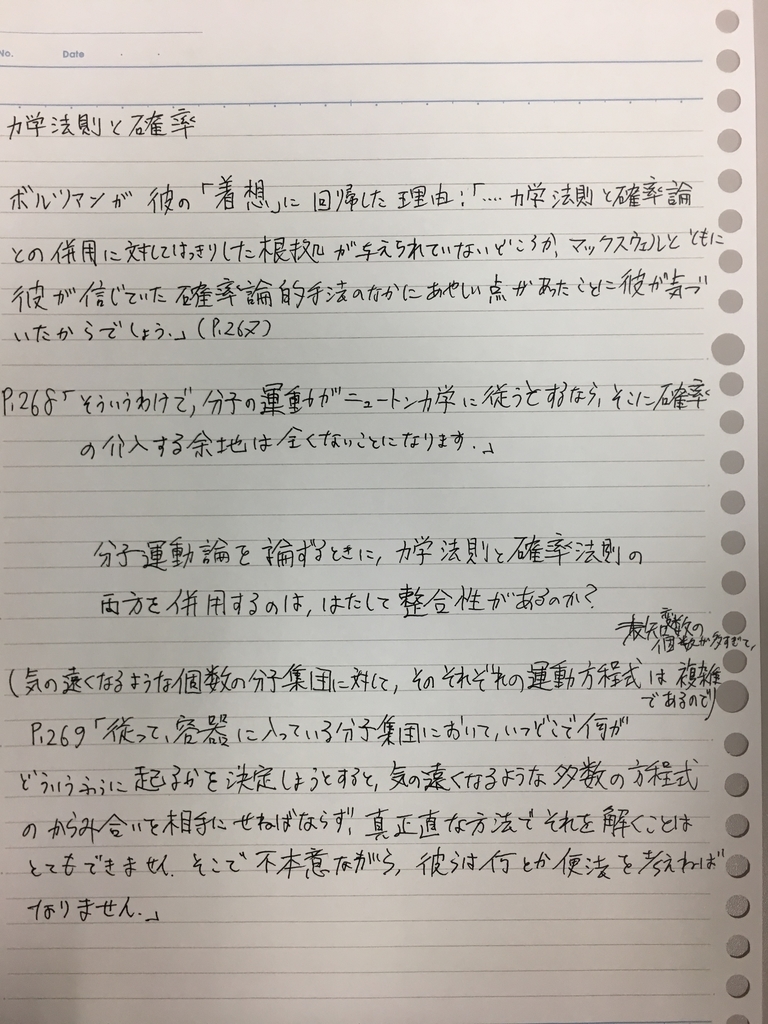 No.
Date . .
力学法則と確率
ボルツマンが 彼の「着想」に 回帰した 理由:「‥‥ 力学法則と確率論
との併用に対してはっきりした根拠が与えられていないどころか、マックスウェルとともに
彼が信じていた 確率論的手法のなかにあやしい点があったことに彼が気づ
いたからでしょう.」(P.267)
P.268「そういうわけで, 分子の運動がニュートン力学に従うとするなら, そこに確率
の介入する余地は全くないことになります.」
分子運動論を論ずるときに, 力学法則と確率法則の
両方を併用するのは, はたして整合性があるのか?
変数の
個数が多すぎて,
(気の遠くなるような個数の分子集団に対して, そのそれぞれの運動方程式は複雑
であるので)
P.269「従って, 容器に入っている分子集団において, いつどこで何が
どういうふうに起るかを決定しようとすると, 気の遠くなるような多数の方程式
のからみ合いを相手にせねばならず, 真正直な方法でそれを解くことは
とてもできません. そこで不本意ながら, 彼らは何とか便法を考えねば
なりません.」